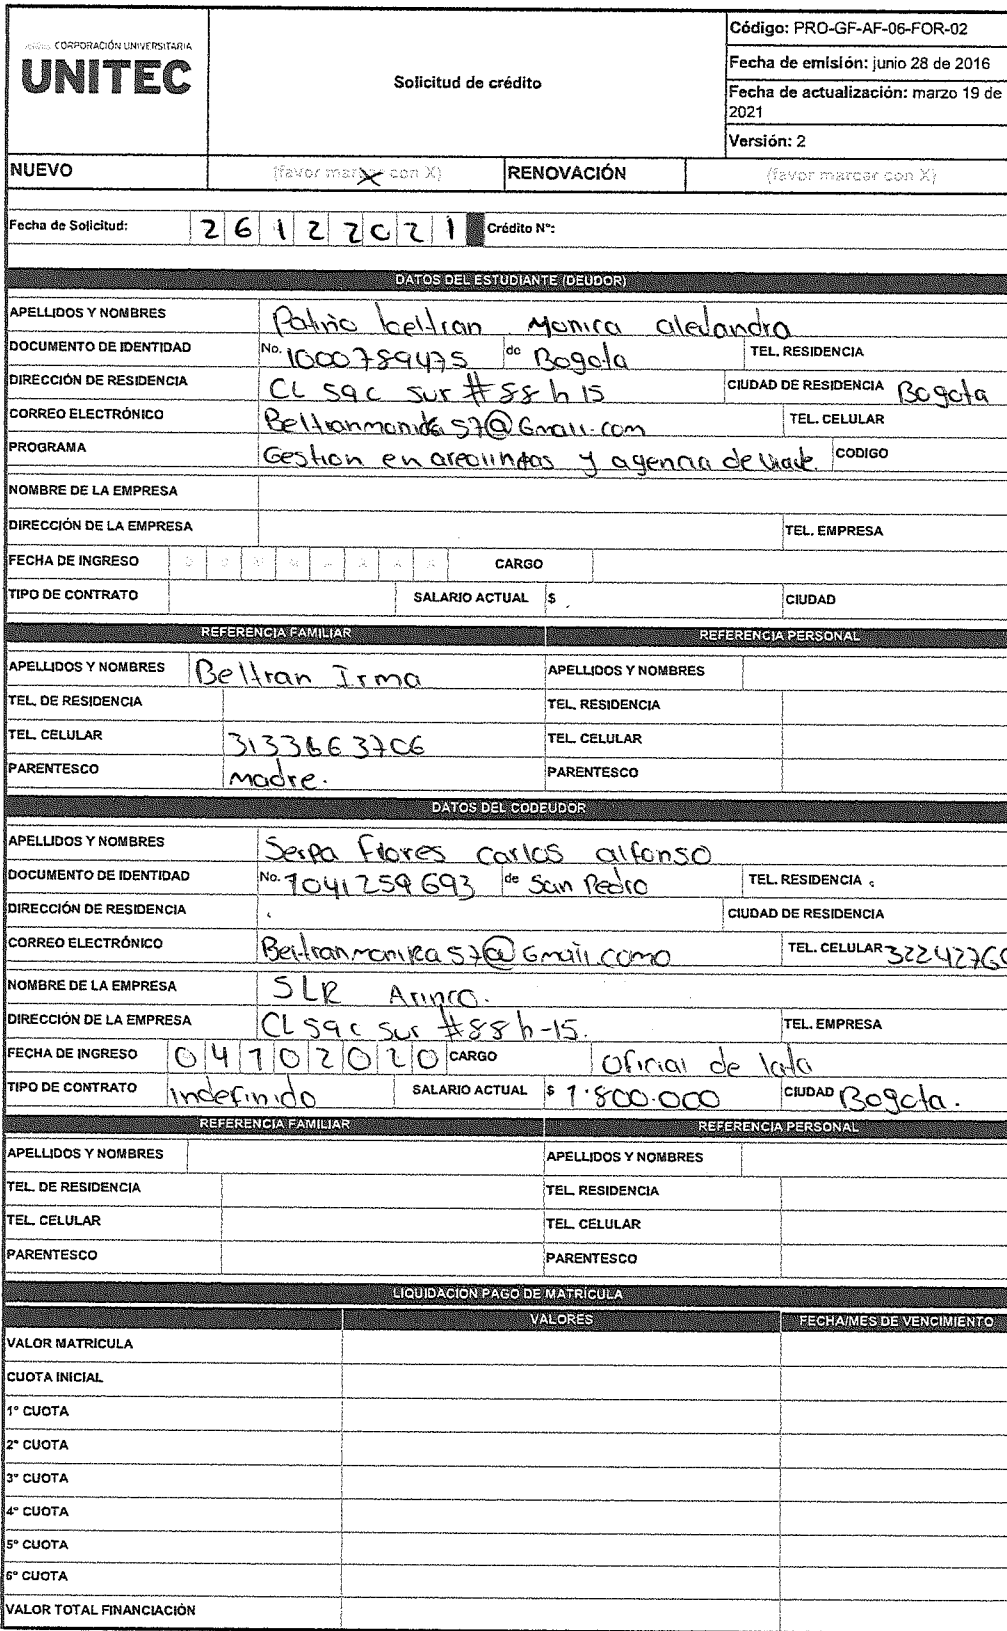 CORPORACIÓN UNIVERSITARIA
UNITEC
Solicitud de crédito
Código: PRO-GF-AF-06-FOR-02
Fecha de emisión: junio 28 de 2016
Fecha de actualización: marzo 19 de
2021
Versión: 2
NUEVO (favor marcar con X) X RENOVACIÓN (favor marcar con X)
Fecha de Solicitud: 2 6 1 2 2 0 2 1 Crédito N°:
DATOS DEL ESTUDIANTE (DEUDOR)
APELLIDOS Y NOMBRES Patiño beltran Monica alejandra
DOCUMENTO DE IDENTIDAD No. 1000789475 de Bogota TEL. RESIDENCIA
DIRECCIÓN DE RESIDENCIA CL 59 c sur # 88 h 15 CIUDAD DE RESIDENCIA Bogota
CORREO ELECTRÓNICO Beltranmonika57@Gmail.com TEL. CELULAR
PROGRAMA Gestion en y agencia de viaje. CODIGO
NOMBRE DE LA EMPRESA
DIRECCIÓN DE LA EMPRESA TEL. EMPRESA
FECHA DE INGRESO D D M M A A A A CARGO
TIPO DE CONTRATO SALARIO ACTUAL $ CIUDAD
REFERENCIA FAMILIAR REFERENCIA PERSONAL
APELLIDOS Y NOMBRES Beltran Irma APELLIDOS Y NOMBRES
TEL. DE RESIDENCIA TEL. RESIDENCIA
TEL. CELULAR 3133663706 TEL. CELULAR
PARENTESCO madre. PARENTESCO
DATOS DEL CODEUDOR
APELLIDOS Y NOMBRES Serpa Flores carlos alfonso
DOCUMENTO DE IDENTIDAD No. 1041259693 de San Pedro TEL. RESIDENCIA
DIRECCIÓN DE RESIDENCIA CIUDAD DE RESIDENCIA
CORREO ELECTRÓNICO Beltranmonika57@Gmail.como TEL. CELULAR 32242760
NOMBRE DE LA EMPRESA SLR
DIRECCIÓN DE LA EMPRESA CL 59 c sur #88 h-15. TEL. EMPRESA
FECHA DE INGRESO 0 4 1 0 2 0 2 0 CARGO Oficial de lata
TIPO DE CONTRATO indefinido SALARIO ACTUAL $ 1.800.000 CIUDAD Bogota.
REFERENCIA FAMILIAR REFERENCIA PERSONAL
APELLIDOS Y NOMBRES APELLIDOS Y NOMBRES
TEL. DE RESIDENCIA TEL. RESIDENCIA
TEL. CELULAR TEL. CELULAR
PARENTESCO PARENTESCO
LIQUIDACION PAGO DE MATRÍCULA
VALORES FECHA/MES DE VENCIMIENTO
VALOR MATRICULA
CUOTA INICIAL
1° CUOTA
2° CUOTA
3° CUOTA
4° CUOTA
5° CUOTA
6° CUOTA
VALOR TOTAL FINANCIACIÓN